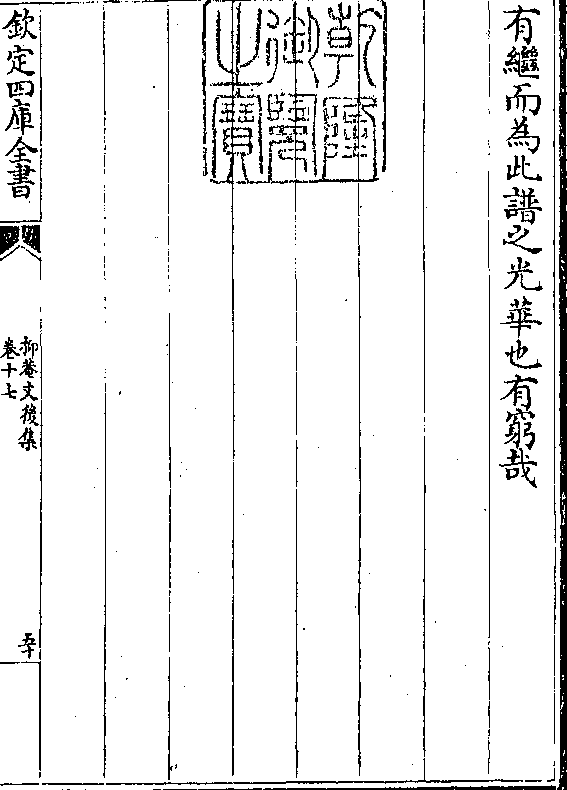 有繼而為此譜之光華也有窮哉
乾隆御覽之寶
欽定四庫全書
抑菴文後集
卷十七
五十